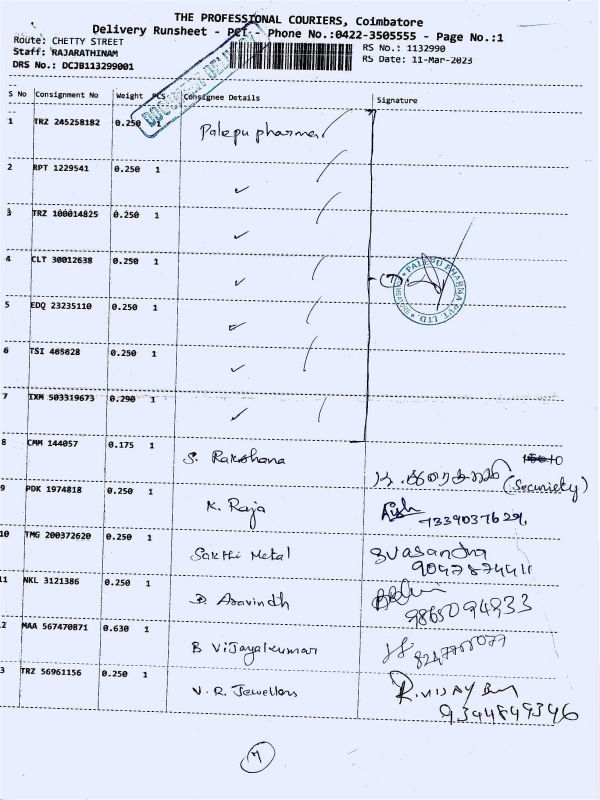 THE PROFESSIONAL COURIERS, Coimbatore
Delivery Runsheet - PCT - Phone No.:0422-3505555 - Page No.:1
Route: CHETTY STREET
RS No.: 1132990
Staff: RAJARATHINAM
RS Date: 11-Mar-2023
DRS No.: DCJB113299001
S No Consignment No Weight PCS Consignee Details Signature
1 TRZ 245258182 0.250 1 Palepu pharma
2 RPT 1229541 0.250 1
3 TRZ 100014825 0.250 1
4 CLT 30012638 0.250 1
PALEPU PHARMA PVT. LTD.
5 EDQ 23235110 0.250 1
6 TSI 465628 0.250 1
7 IXM 503319673 0.290 1
8 CMM 144057 0.175 1 S. Rakshana
(Security)
9 PDK 1974818 0.250 1 K. Raja
7339037629
10 TMG 200372620 0.250 1 Sakthi Metal
9047874411
11 NKL 3121386 0.250 1 D Aravindh
9865094933
2 MAA 567470871 0.630 1 B Vijayakumar
3 TRZ 56961156 0.250 1 V. R. Jewellers
9344849346
7